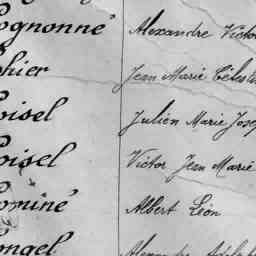 ognonné Alexandre Victor
hier Jean Marie Célestin
oisel Julien Marie Josep
oisel Victor Jean Marie
ominé Albert Léon
ongel Alexandre